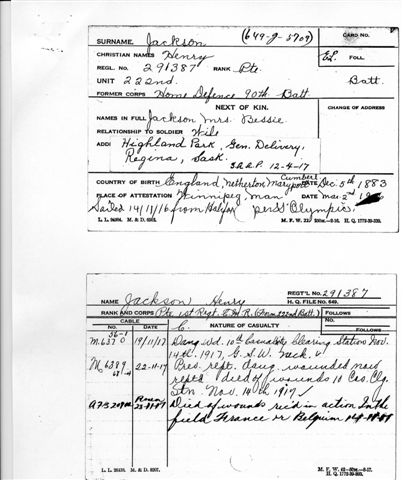 (649-J-5709)
SURNAME Jackson CARD NO.
CHRISTIAN NAMES Henry
REGL. NO. 291387 RANK Pte. FOLL.
UNIT 222nd. Batt.
FORMER CORPS Home Defence 90th Batt.
NEXT OF KIN. CHANGE OF ADDRESS
NAMES IN FULL Jackson Mrs. Bessie
RELATIONSHIP TO SOLDIER Wife
ADD Highland Park, Gen. Delivery,
Regina, Sask. 12-4-17
COUNTRY OF BIRTH England, Netherton Maryport Cumberl. DATE Dec. 5th 1883
PLACE OF ATTESTATION Winnipeg, Man DATE Mar. 2
Sailed from Halifax per SS Olympic.
L. L. M. & D. M. F. W. H. Q. 1772-39-339.
REGT'L NO. 291387
NAME Jackson Henry H. Q. FILE NO. 649.
RANK AND CORPS Pte 1st Regt. C.M.R. (Form 222nd Batt.) FOLLOWS
CABLE NATURE OF CASUALTY FOLLOWS
NO. DATE C.
M.6370 19/11/17 Dang Wd. 10th Casualty Clearing Station Nov.
14th. 1917, G.S.W. neck.
M.6389 22-11-17 Prev. rept. dang. wounded now
rept'd died of wounds 10 Cas. Clg.
Stn. Nov. 14th 1917
Died of wounds rec'd in action In the
field France or Belgium
L. L. M. & D. M. F. W. H. Q. 1772-39-339.